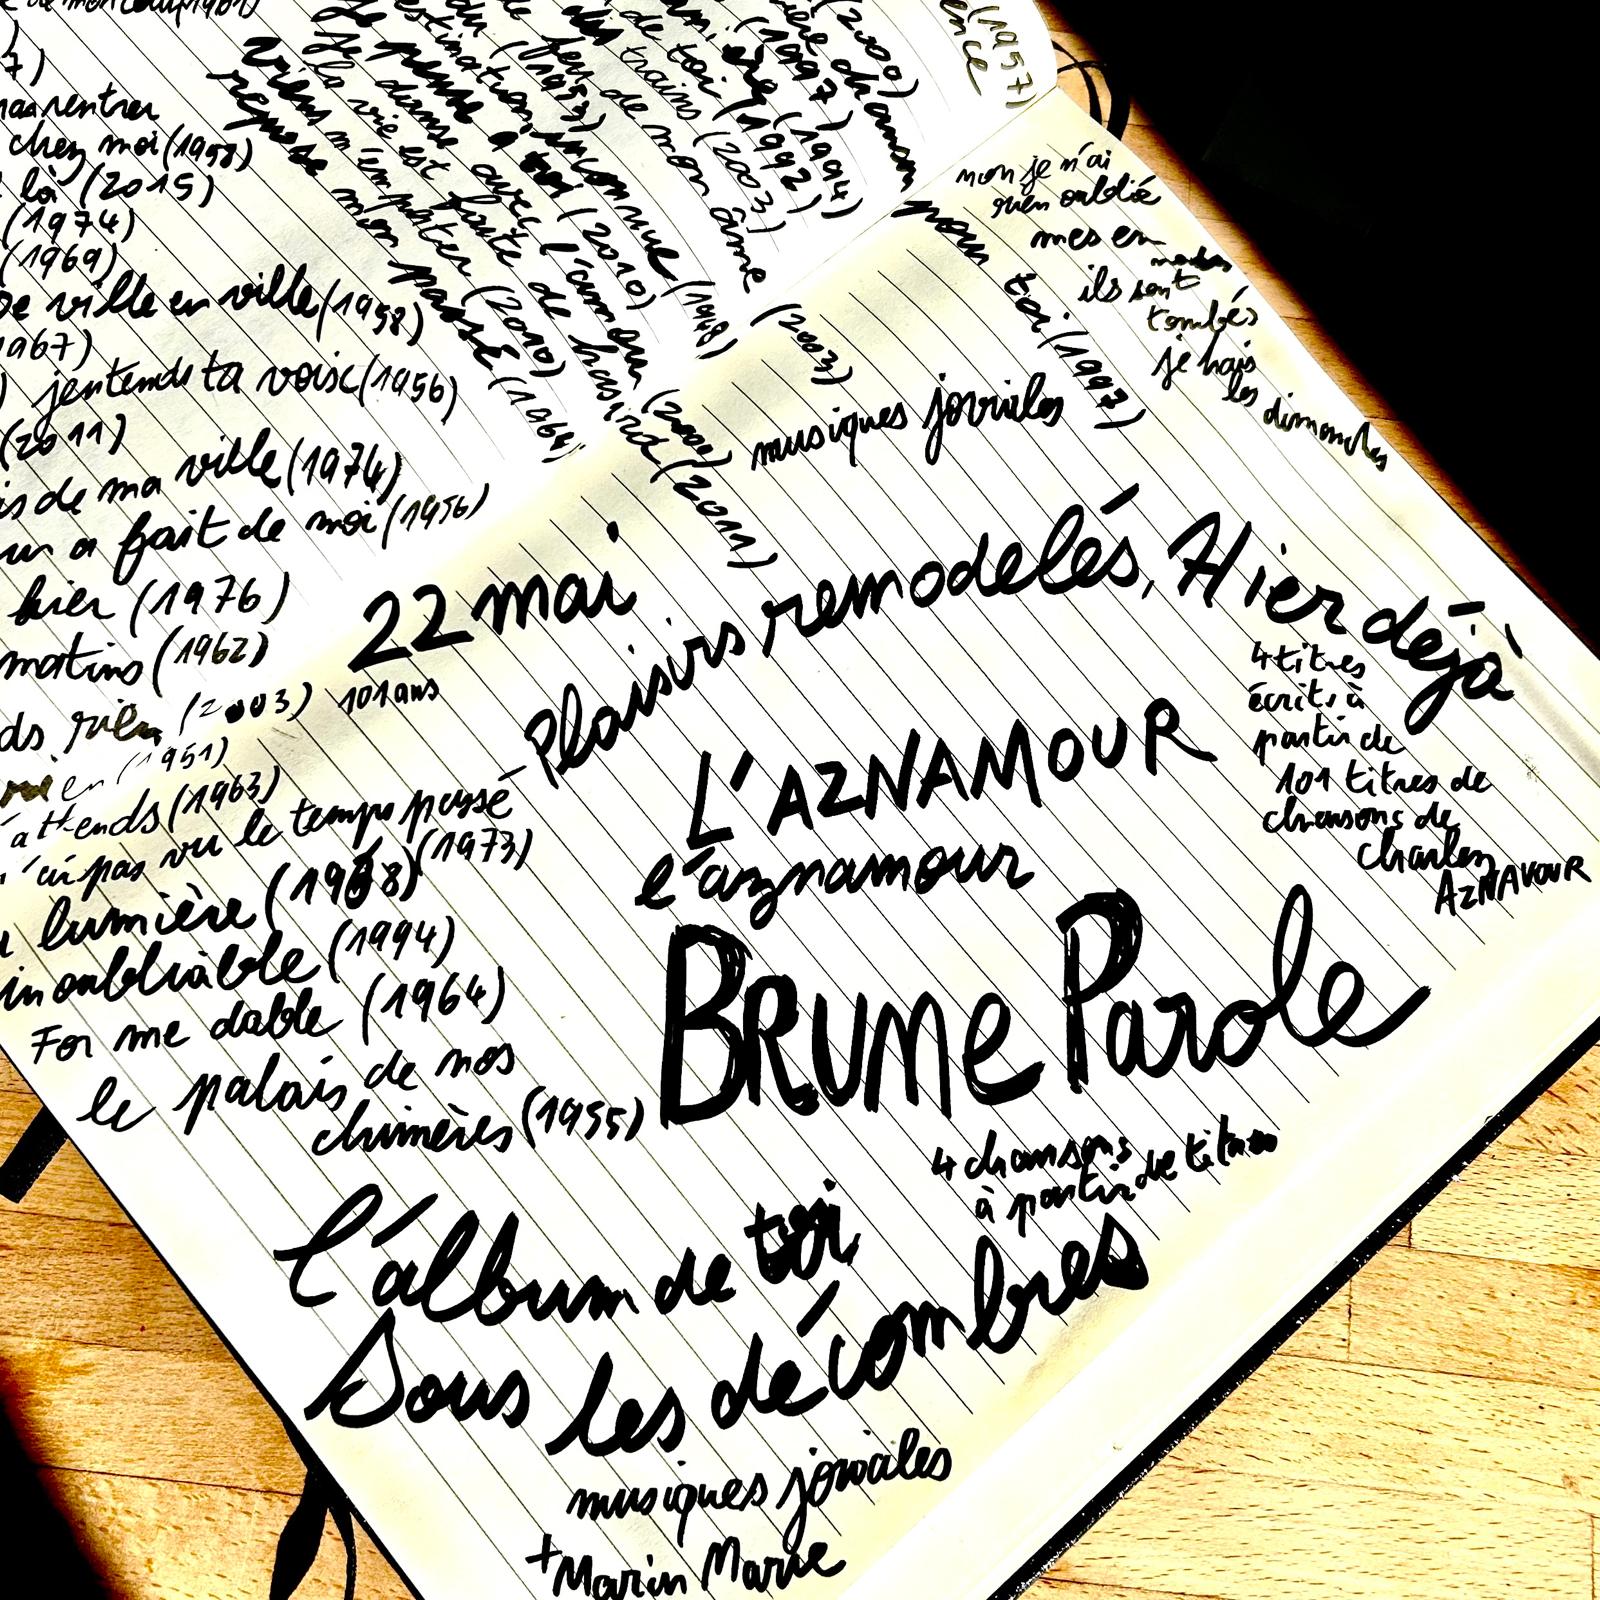 de mon coup
7)
rentrer
chez moi (1958)
là (2015)
(1974)
(1969)
De ville en ville (1958)
1967)
j'entends ta voix (1956)
(2011)
is de ma ville (1974)
a fait de moi (1956)
hier (1976)
matins (1962)
ds rien (2003)
rien (1951)
attends (1963)
pas vu le temps passé
(1973)
lumière (1968)
inoubliable (1994)
For me dable (1964)
le palais de nos
chimères (1955)
viens
repose mon passé (1964)
viens m'emporter (2010)
la vie est faite de hasard (2011)
je danse avec l'amour (2000)
je pense à toi (2010)
inconnue (1948)
du (1953)
feu de mon âme (2003)
des trains (2003)
de toi (1992)
(1994)
(1997)
(2000)
ière chanson
pour toi (1997)
(1957)
ence
non je n'ai
rien oublié
mes em
merdes
ils sont
tombés
je hais
les dimanches
musiques joviales
22 mai
101 ans
Plaisirs remodelés, Hier déjà
L'AZNAMOUR
l'aznamour
4 titres
écrits à
partir de
101 titres de
chansons de
Charles
AZNAVOUR
BRUME Parole
4 chansons
à partir de titres
l'album de toi
Sous les décombres
musiques joviales
+ Marin Marie